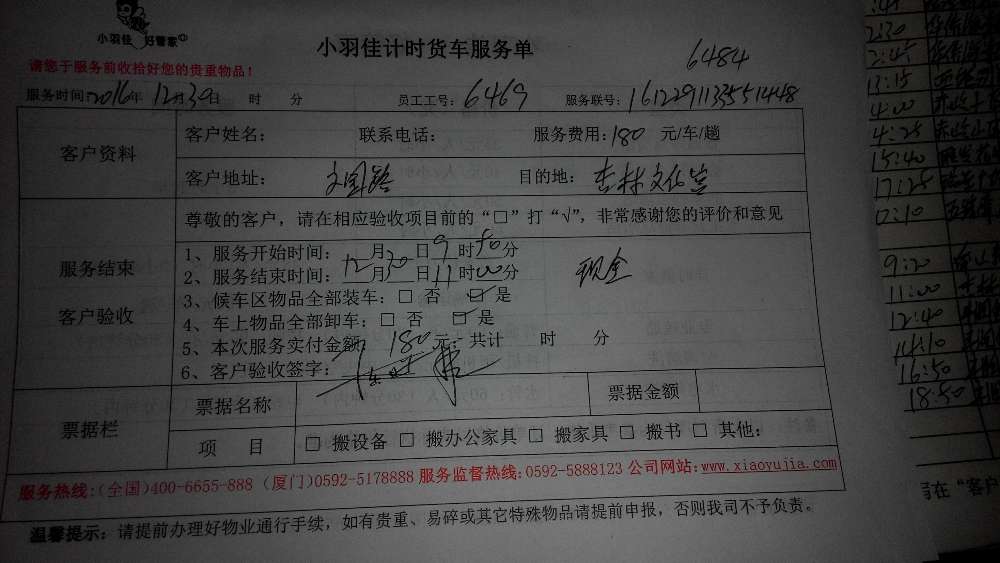 小羽佳 好管家
小羽佳计时货车服务单
6484
请您于服务前收拾好您的贵重物品！
服务时间:2016年 12月30日 时 分 员工工号: 6469 服务联号:
客户资料
客户姓名： 联系电话： 服务费用:180 元/车/趟
客户地址： 文园路 目的地： 杏林文化堂
服务结束
客户验收
尊敬的客户，请在相应验收项目前的“□”打“√”，非常感谢您的评价和意见
1、服务开始时间： 月 日9时 分
2、服务结束时间：12月30日11时00分
现金
3、候车区物品全部装车：□ 否 ☑ 是
4、车上物品全部卸车：□ 否 ☑ 是
5、本次服务实付金额： 180 元；共计 时 分
6、客户验收签字：
票据栏
票据名称 票据金额
项 目 □ 搬设备 □ 搬办公家具 □ 搬家具 □ 搬书 □ 其他：
服务热线:(全国)400-6655-888 (厦门)0592-5178888 服务监督热线:0592-5888123 公司网站:www.xiaoyujia.com
温馨提示：请提前办理好物业通行手续，如有贵重、易碎或其它特殊物品请提前申报，否则我司不予负责。
:45
2:30
2:45
13:15
4:00
4:25
15:40
17:25
17:10
9:20
11:00
12:40
14:10
16:50
18:50
在“客户